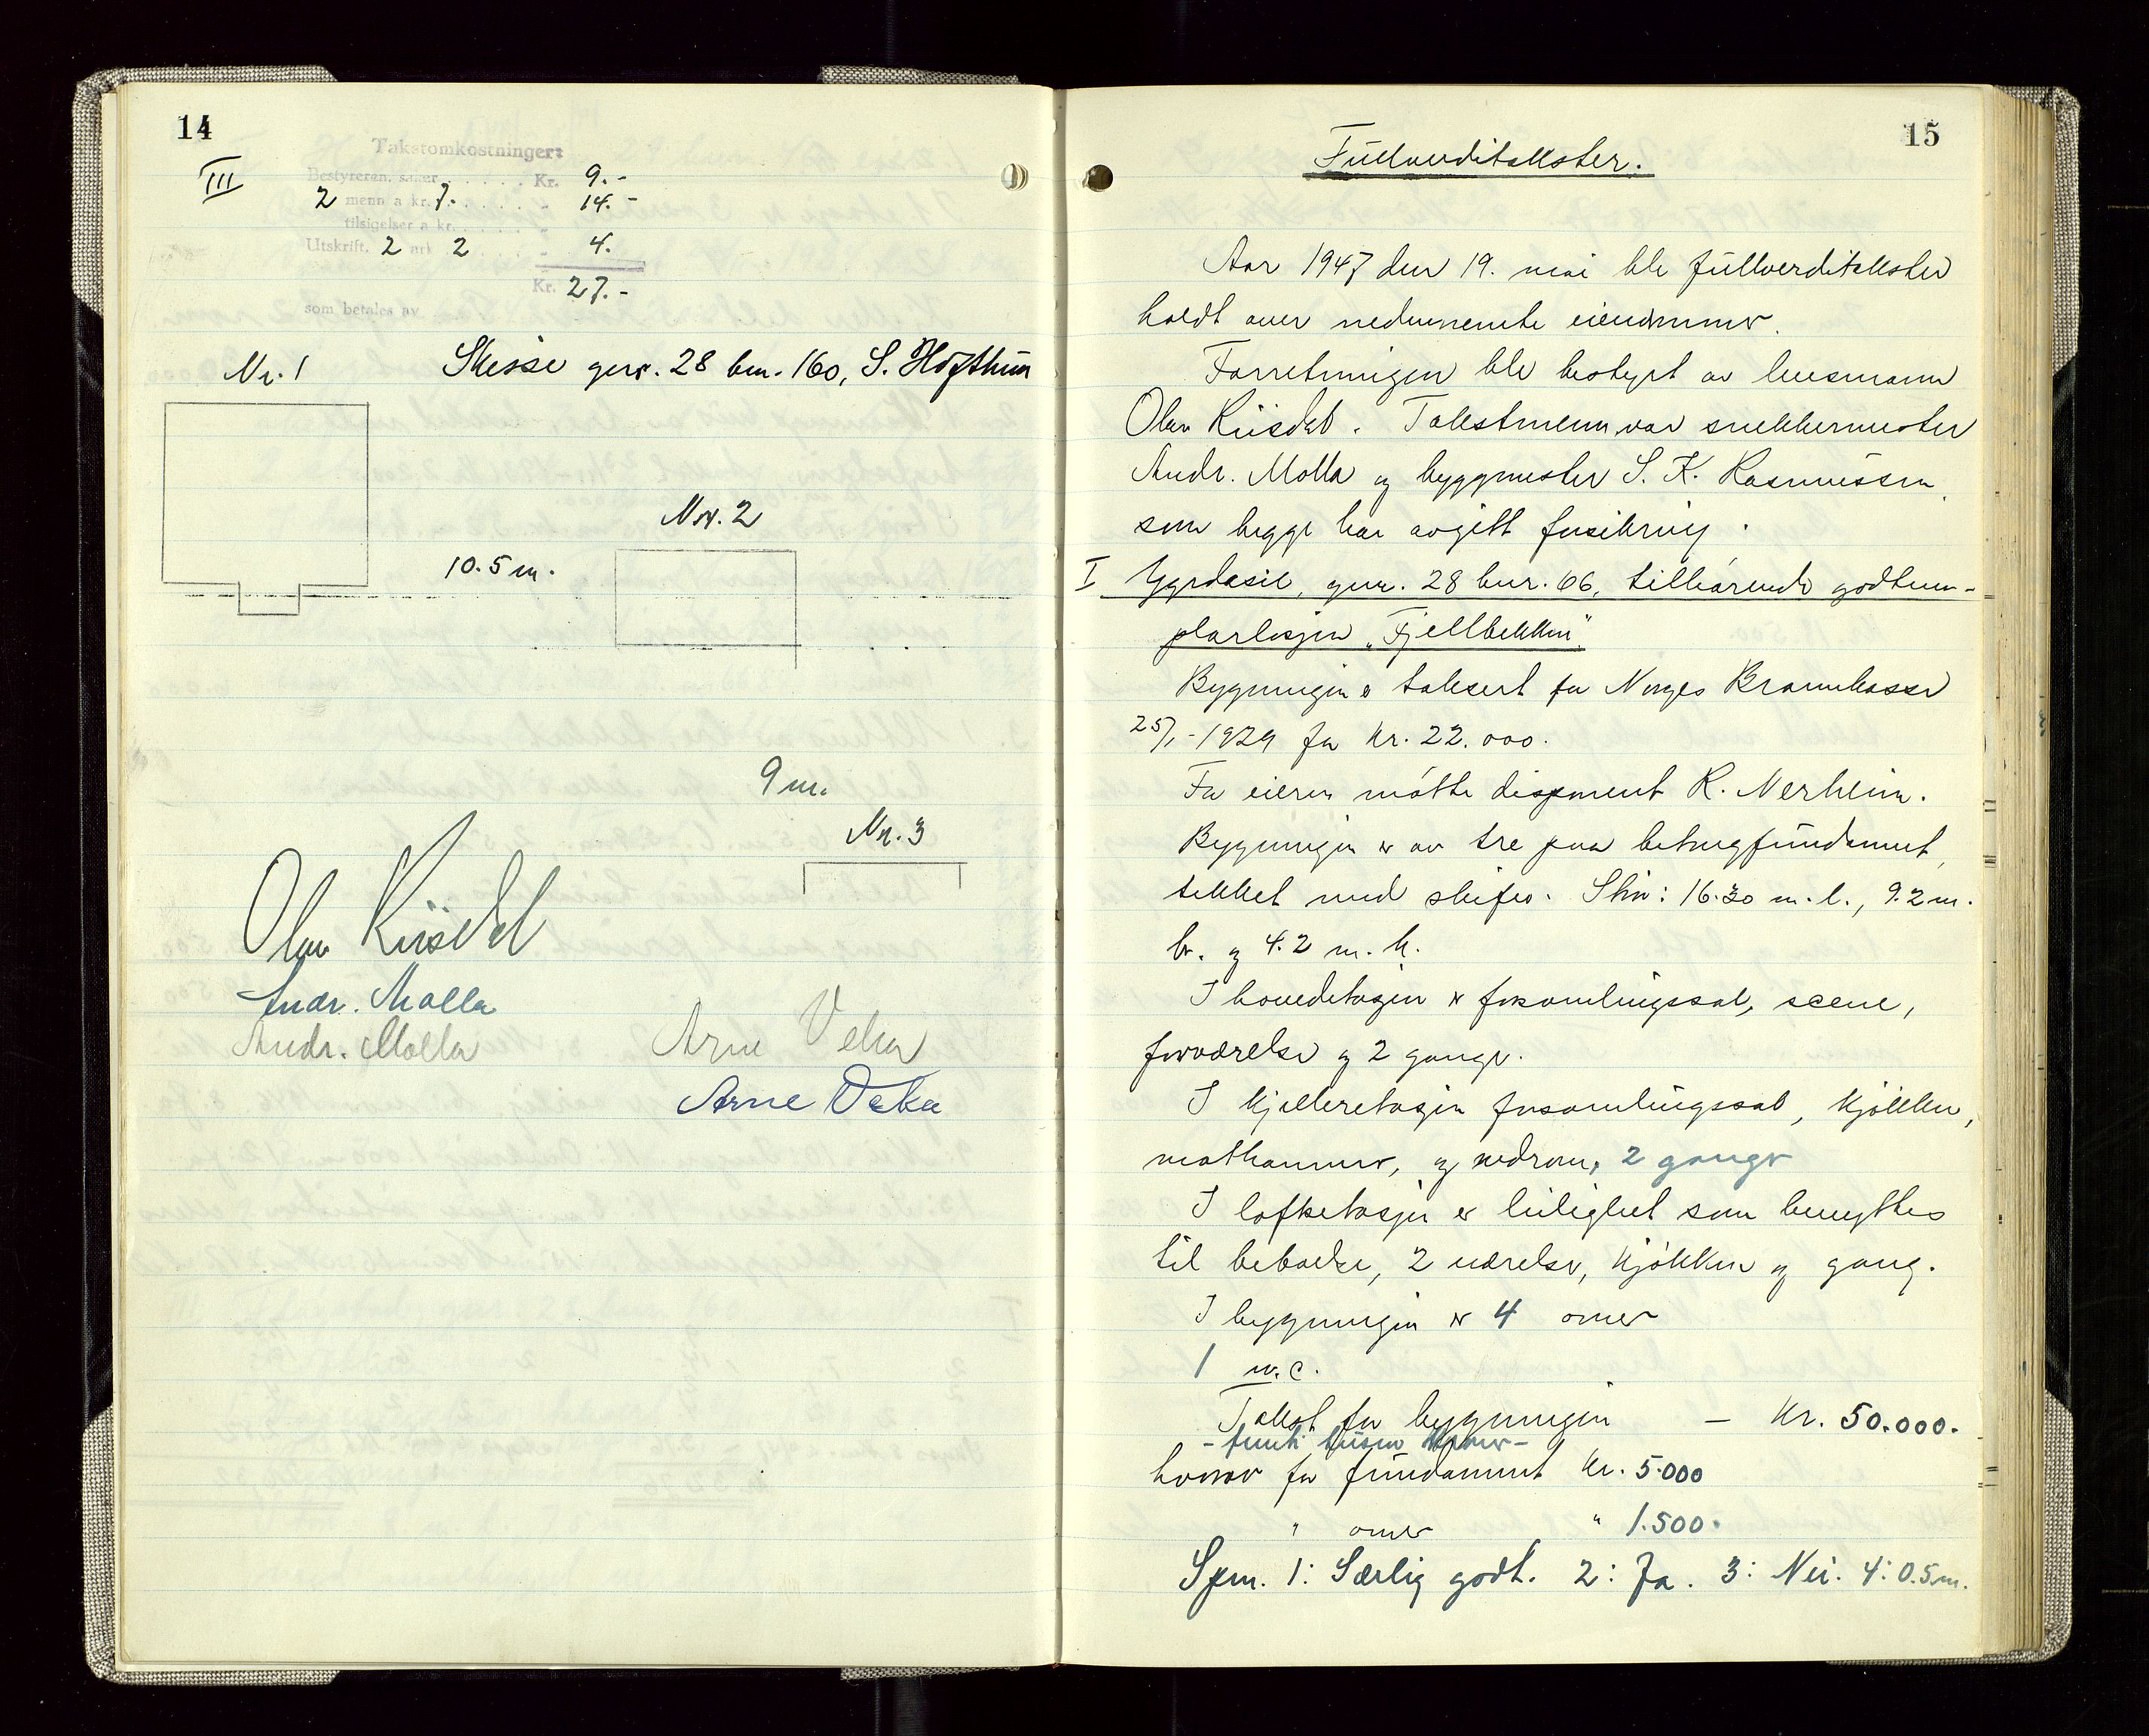 14
III
Takstomkostninger:
Bestyreren, saker . . . . . . Kr. 9.-
2 menn a kr. 7. . . . . . . „ 14.-
tilsigelser a kr. . . . . . . „
Utskrift, 2 ark 2 . . . . „ 4.
Kr. 27.-
som betales av
Nr. 1 Skisse gnr. 28 bnr. 160, S. Høfthun
Nr. 2
10.5 m.
9 m.
Nr. 3
Olav Risdal
Andr. Molla
Andr. Molla Arne Veka
Arne Veka
15
Fullverditakster.
Aar 1947 den 19. mai ble fullverditakster
holdt over nedennevnte eiendommer.
Forretningen ble bestyrt av lensmann
Olav Risdal. Takstmenn var snekkermester
Andr. Molla og byggmester S. K. Rasmussen,
som begge har avgitt forsikring.
I Ygdrasil, gnr. 28 bnr. 66, tilhørende godtem-
plarlosjen „Fjellbekken".
Bygningen er taksert for Norges Brannkasse
25/1-1929 for kr. 22.000.
For eieren møtte disponent R. Nerheim.
Bygningen er av tre paa betongfundament,
tekket med skifer. Stør: 16.30 m. l., 9.2 m.
br. og 4.2 m. h.
I hovedetasjen er forsamlingssal, scene,
forværelse og 2 ganger.
I kjelleretasjen forsamlingssal, kjøkken,
matkammer, og vedrom, 2 ganger
I loftsetasjen er leilighet som benyttes
til beboelse, 2 værelser, kjøkken og gang.
I bygningen er 4 ovner
1 w.c.
Takst for bygningen — kr. 50.000.
- femti tusen kroner -
hvorav for fundament kr. 5.000
" ovner " 1.500.
Spm. 1: Særlig godt. 2: Ja. 3: Nei. 4: 0.5 m.